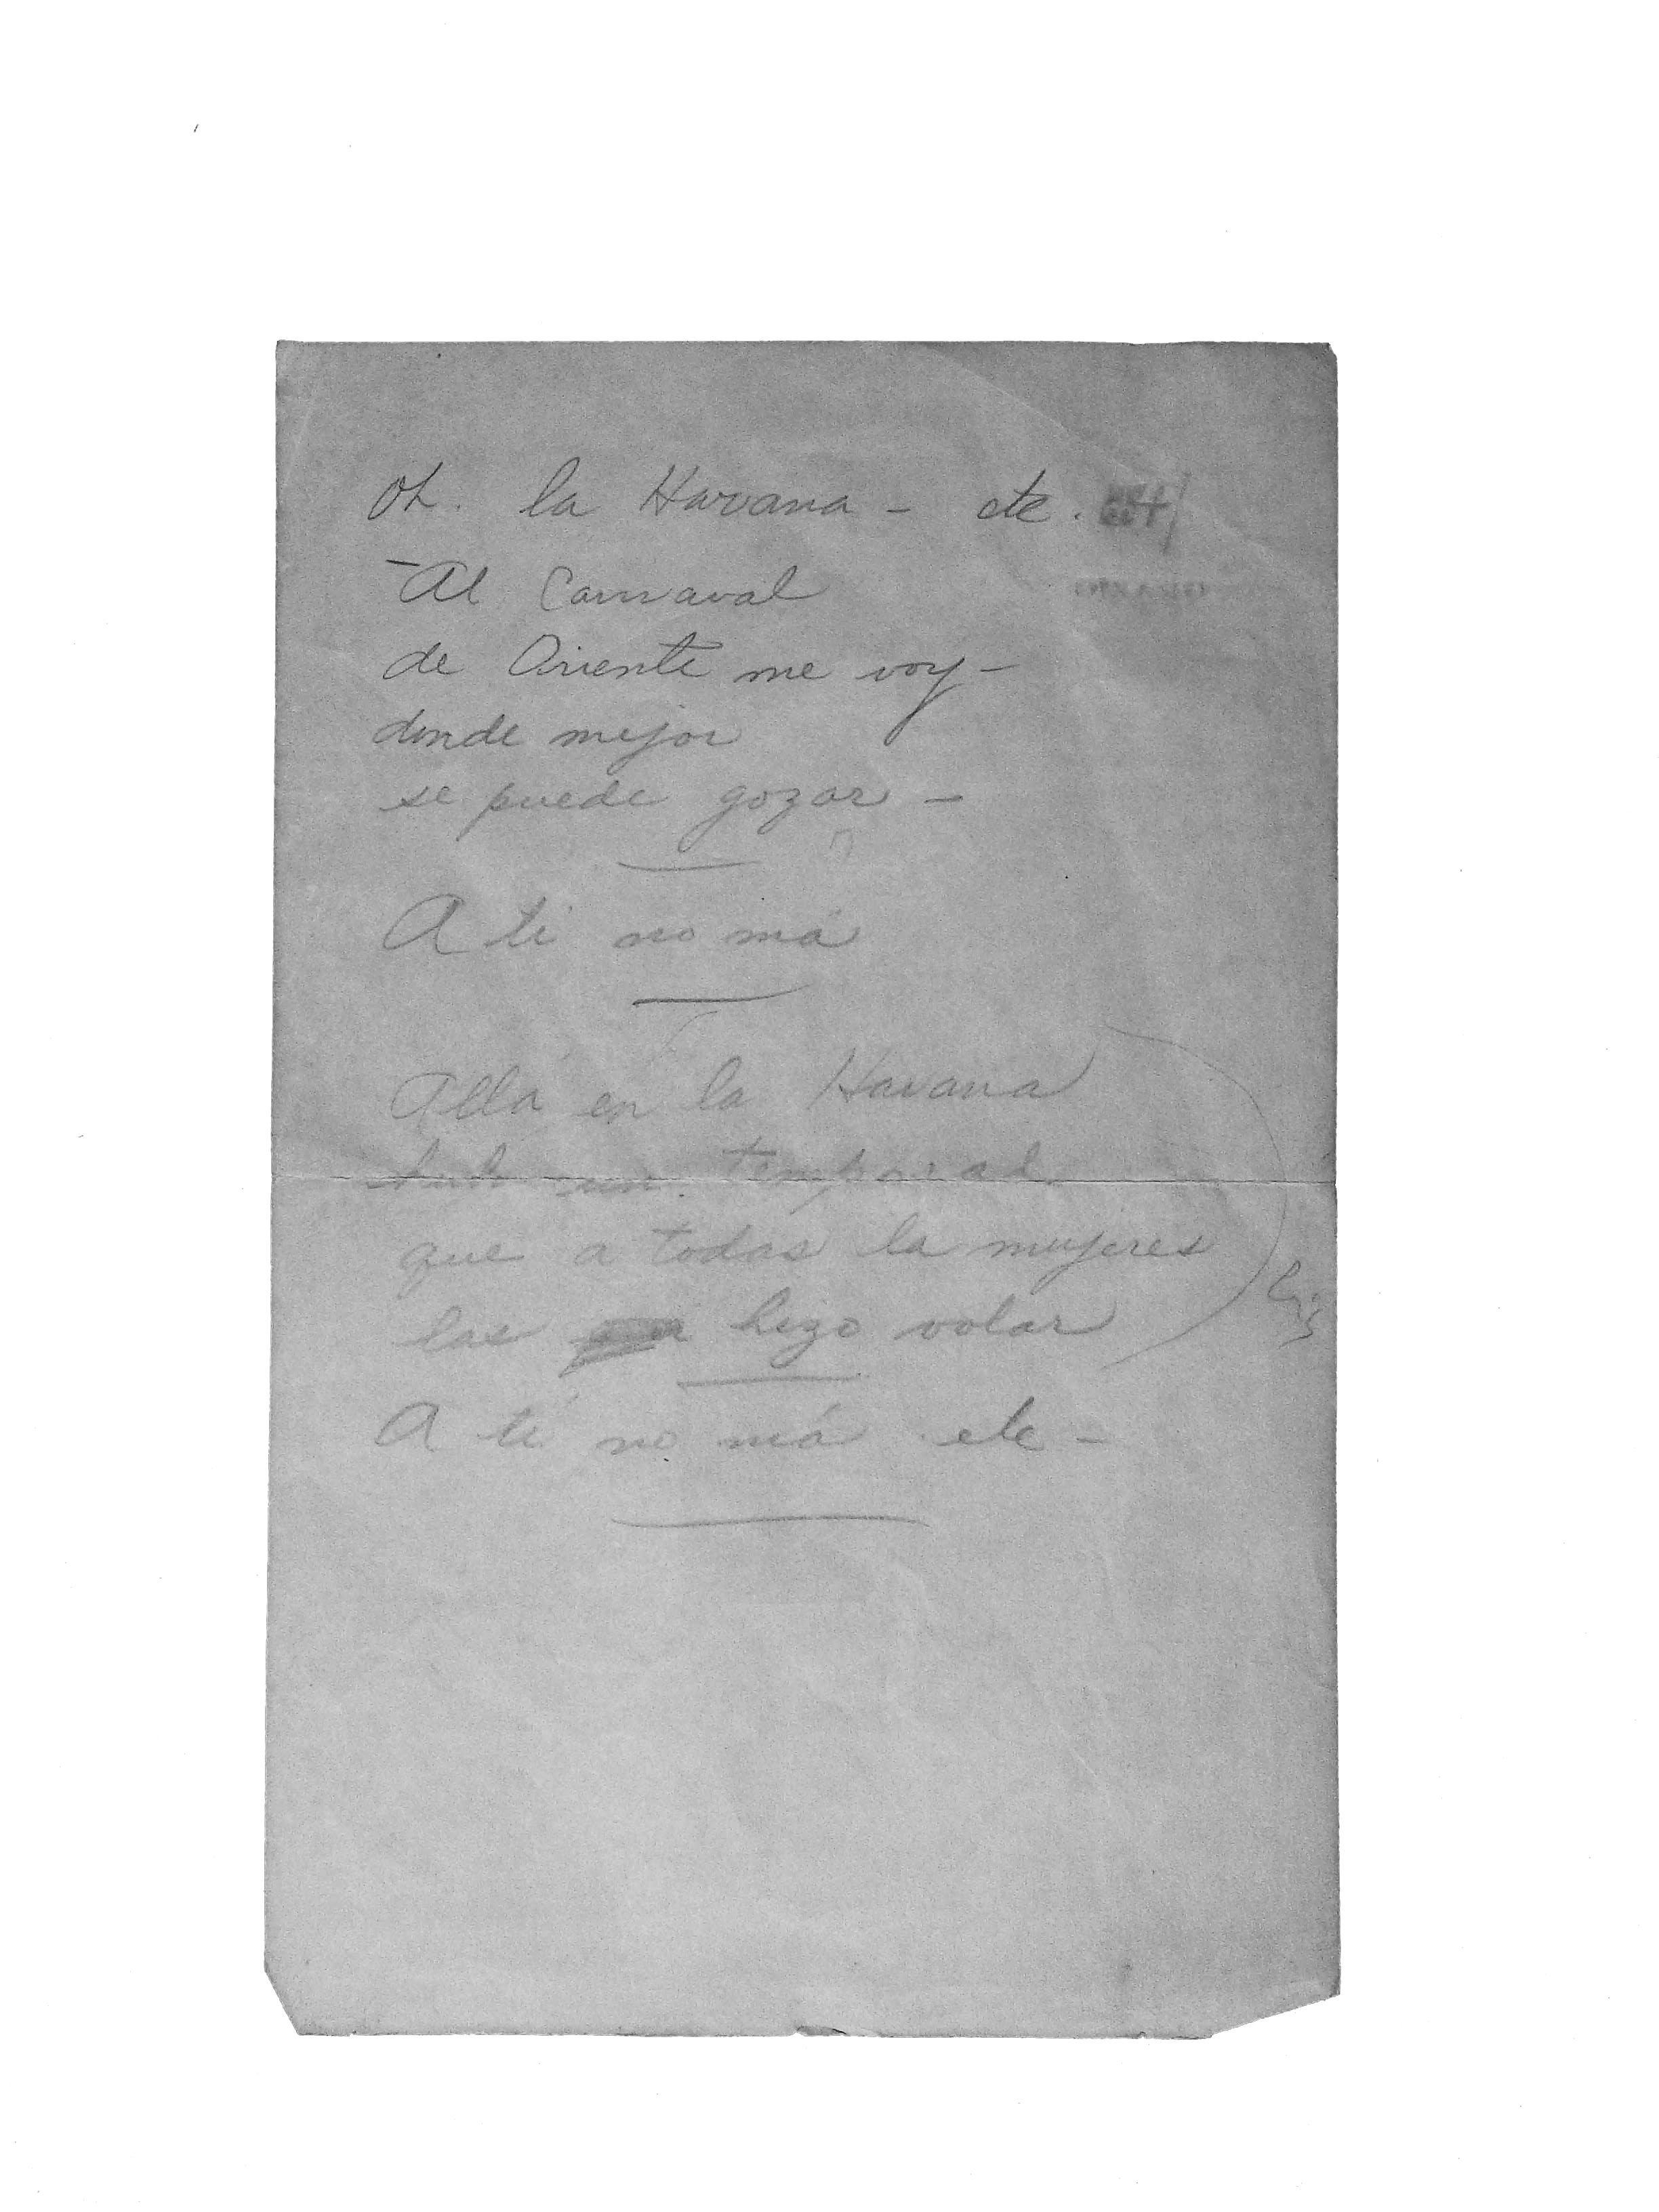 Oh. la Havana - etc.
- Al Carnaval
de Oriente me voy -
donde mejor
se puede gozar -
A ti no má
Allá en la Havana
hubo un temporal
que a todas la mujeres
las hizo volar
A ti no má etc -